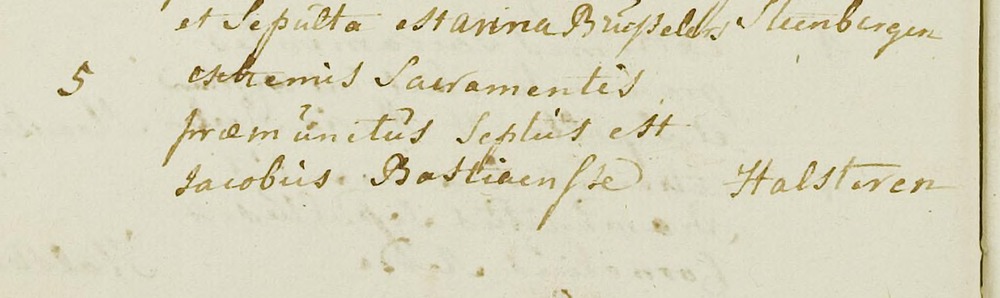 et Sepulta est anna Brusselers Steenbergen
5 extremis Sacramentis
præmunitus Septus est
Jacobus Bastiaensse Halsteren